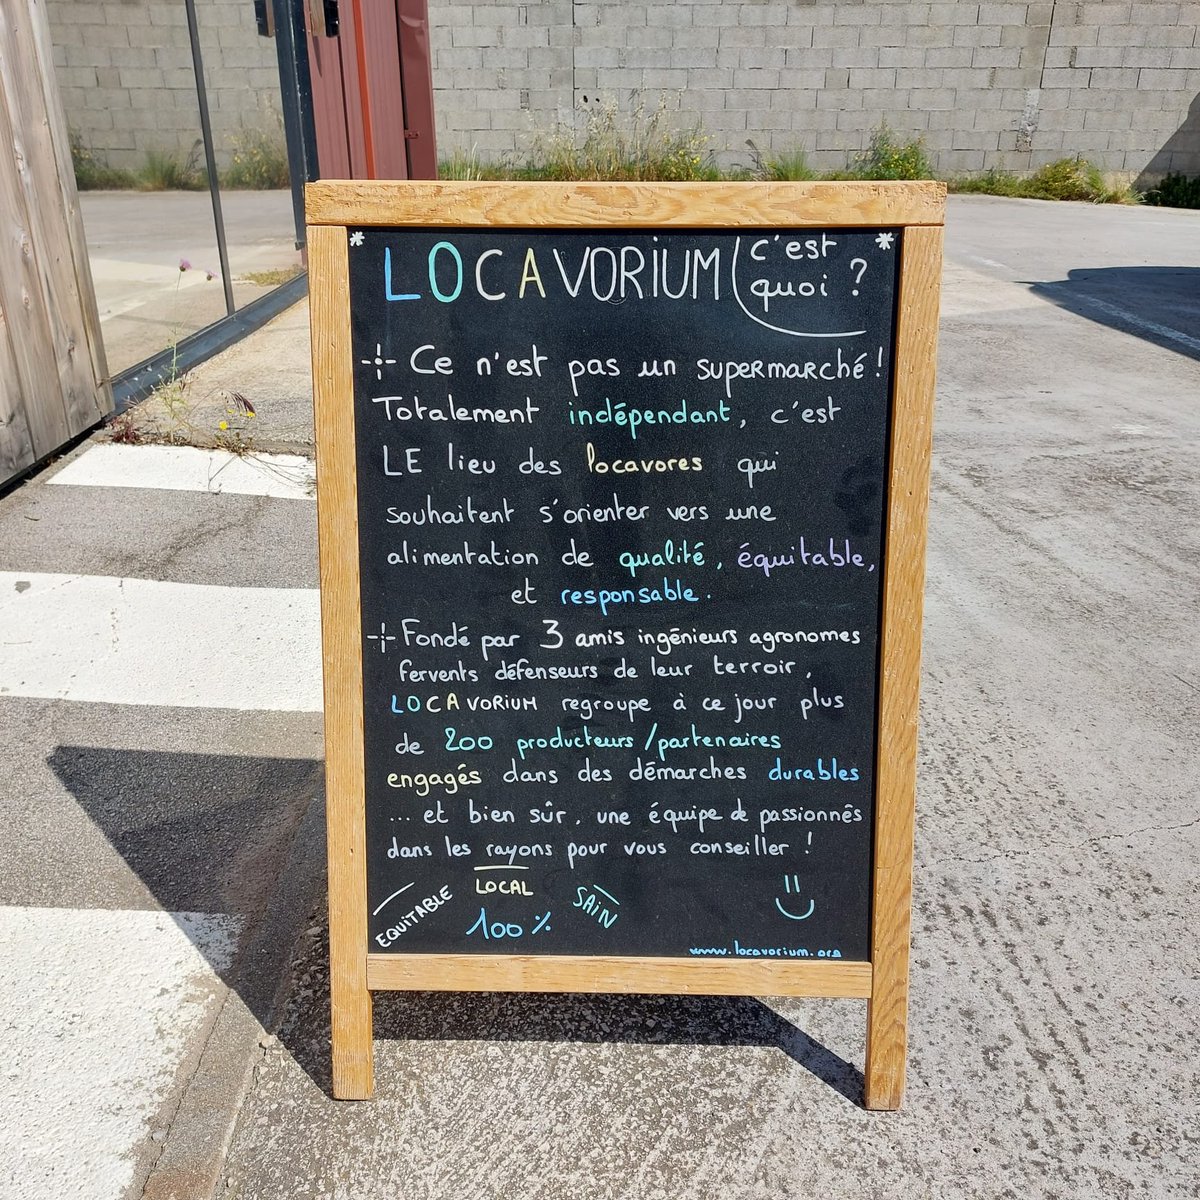 * LOCAVORIUM c'est *
quoi ?
Ce n'est pas un supermarché !
Totalement indépendant, c'est
LE lieu des locavores qui
souhaitent s'orienter vers une
alimentation de qualité, équitable,
et responsable.
Fondé par 3 amis ingénieurs agronomes
fervents défenseurs de leur terroir,
LOCAVORIUM regroupe à ce jour plus
de 200 producteurs/partenaires
engagés dans des démarches durables
... et bien sûr, une équipe de passionnés
dans les rayons pour vous conseiller !
EQUITABLE LOCAL SAIN
100%
www.locavorium.org